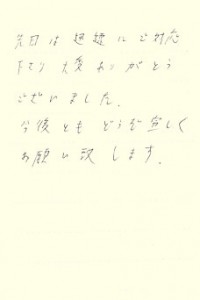 先日は迅速にご対応
下さり大変ありがとう
ございました。
今後ともどうぞ宜しく
お願い致します。